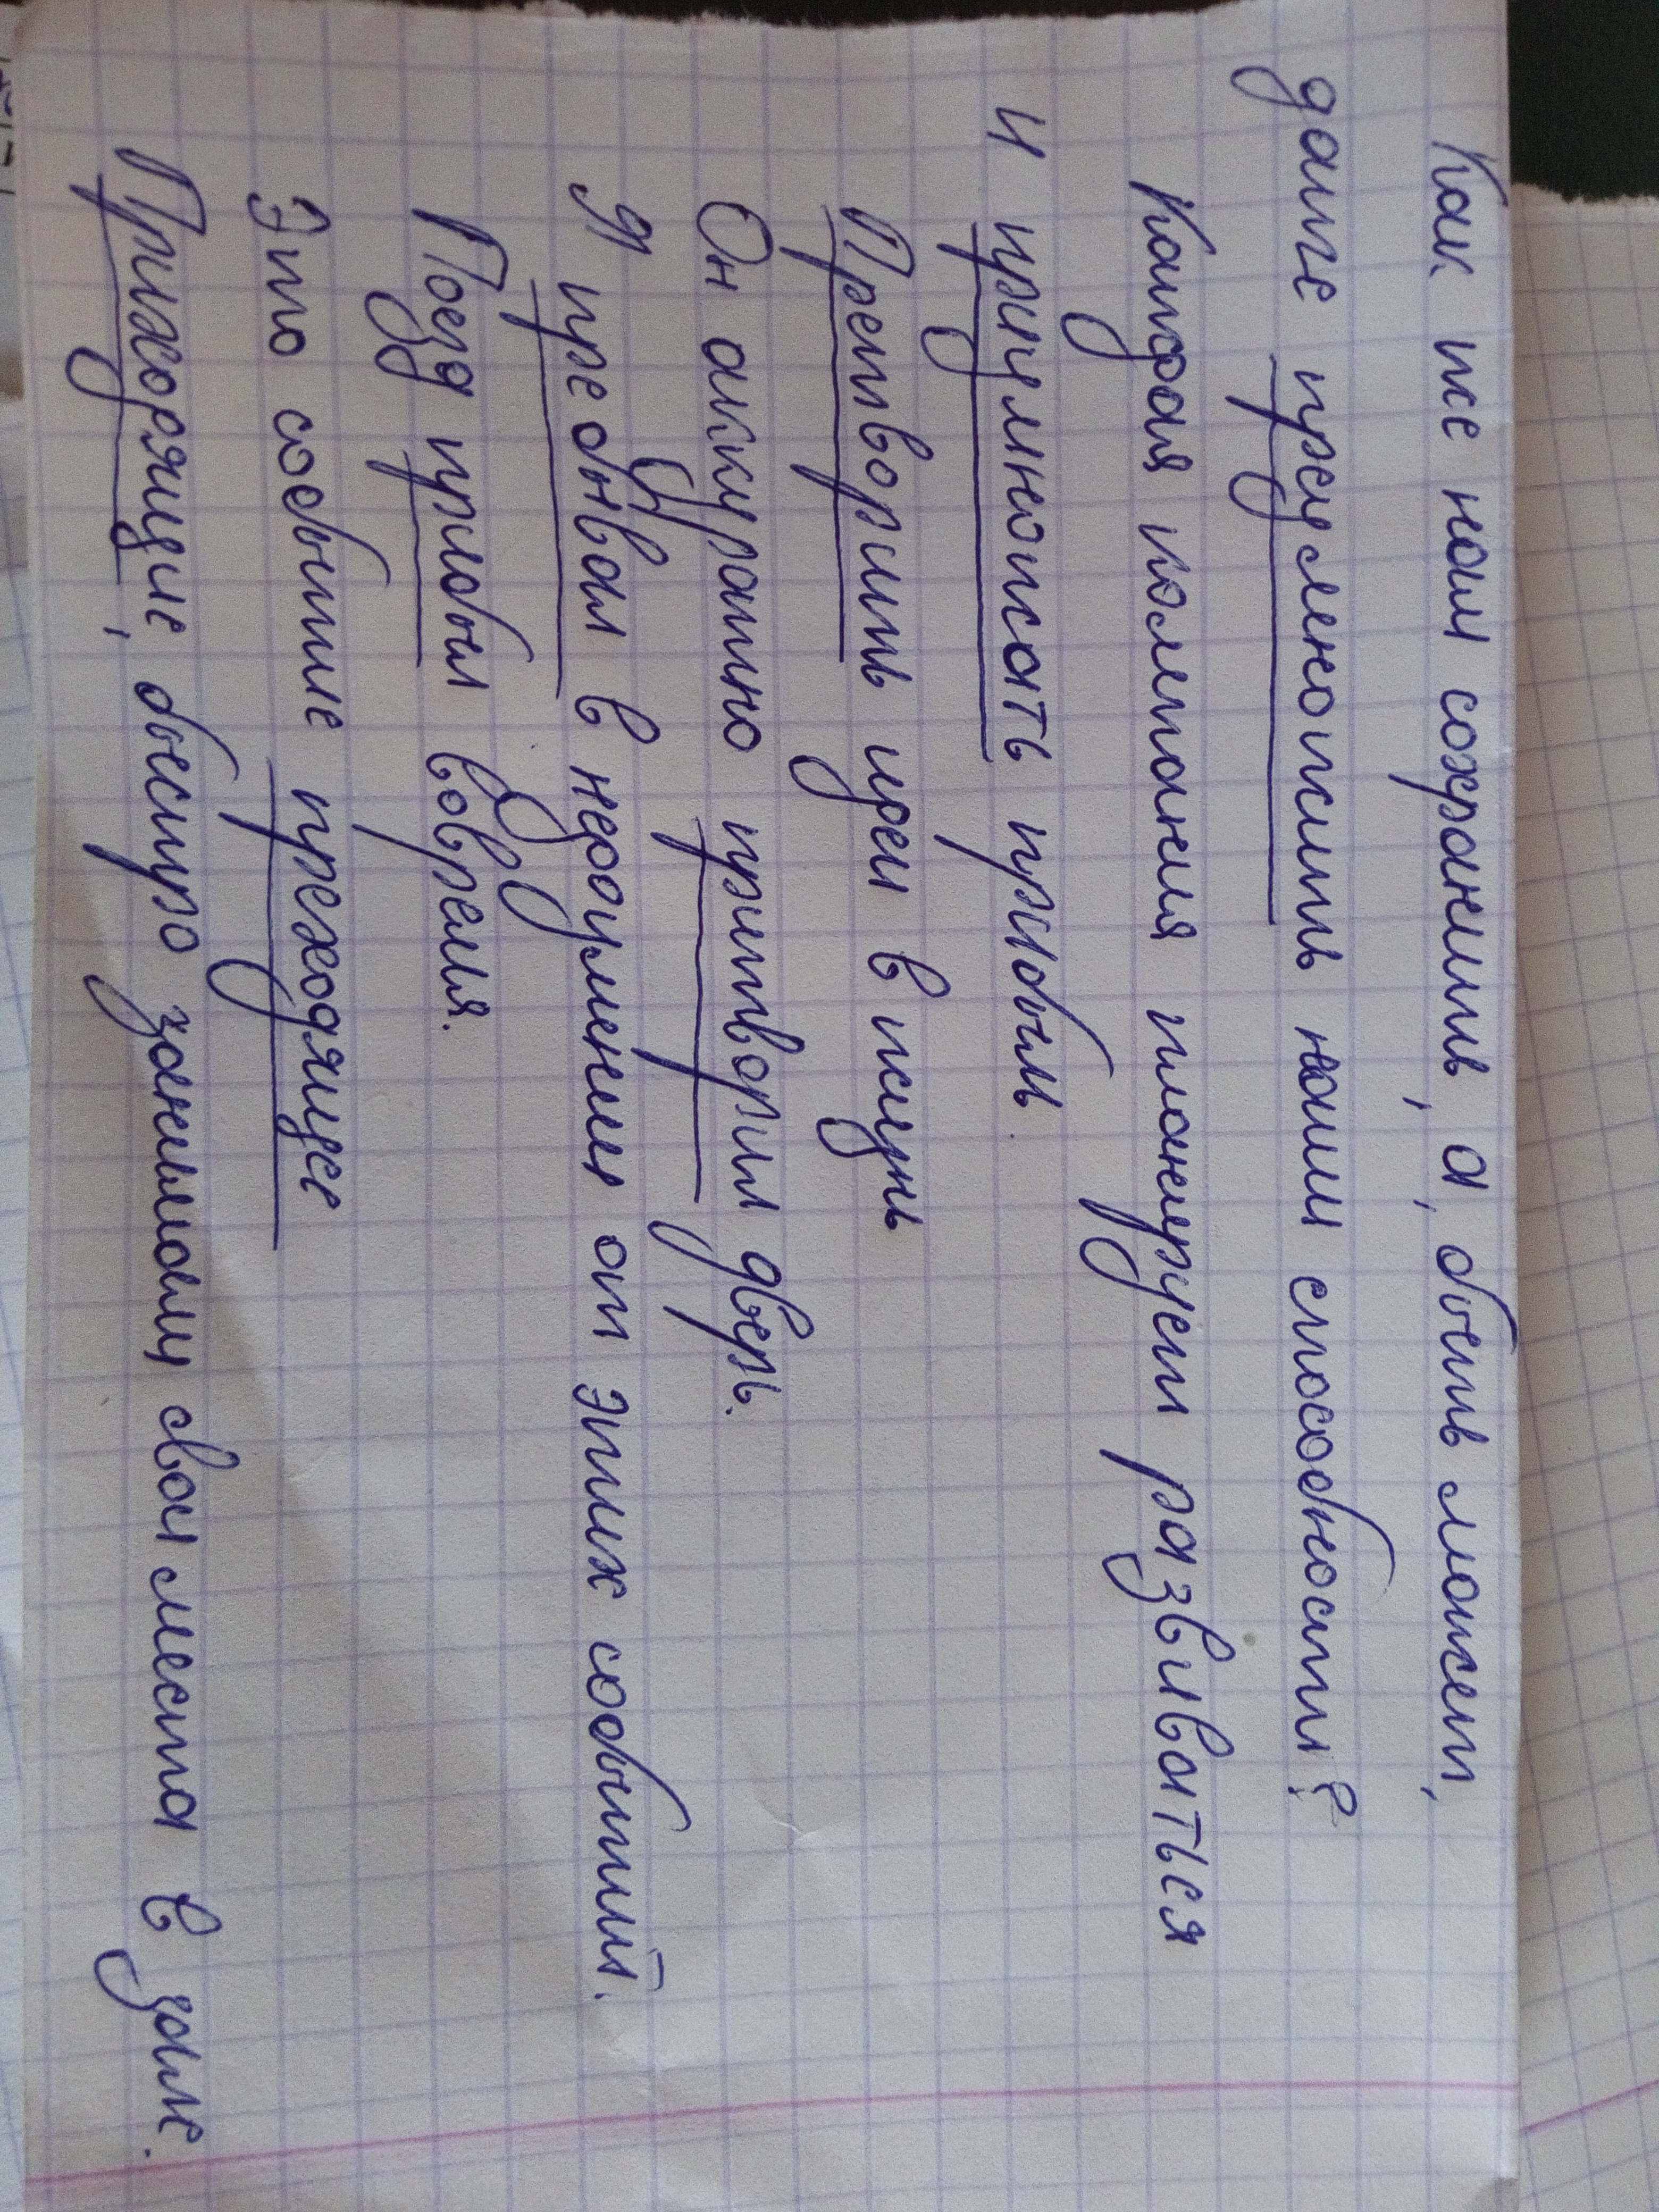 Как же нам сохранить, а, быть может,
даже преумножить наши способности?
Каждая компания планирует развиваться
и приумножать прибыль.
Претворить идеи в жизнь
Он аккуратно притворил дверь.
Я пребывал в недоумении от этих событий.
Поезд прибыл вовремя.
Это событие преходящее
Приходящие, быстро занимали свои места в зале.